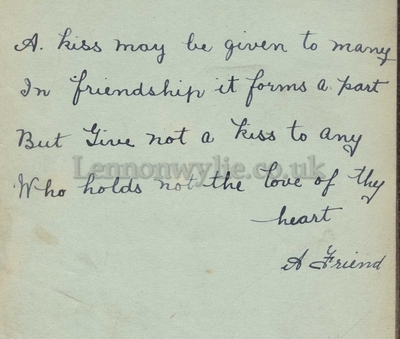 A. kiss may be given to many
In friendship it forms a part
But Give not a kiss to any
Lennonwylie.co.uk
Who holds not the love of thy
heart
A Friend